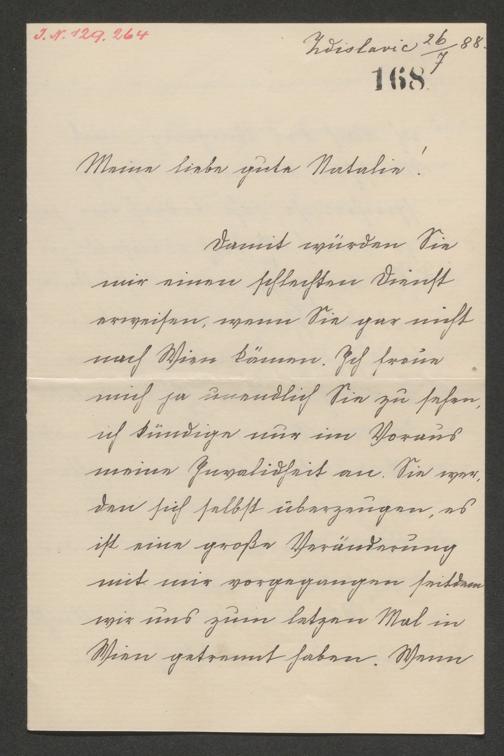 I.N. 129.264
Zdislavic 26/7 88.
168
Meine liebe gute Natalie!
Damit würden Sie
mir einen schlechten Dienst
erweisen, wenn Sie gar nicht
nach Wien kämen. Ich freue
mich ja unendlich Sie zu sehen,
ich kündige nur im Voraus
meine Invalidheit an. Sie wer,
den sich selbst überzeugen, es
ist eine große Veränderung
mit mir vorgegangen seitdem
wir uns zum letzen Mal in
Wien getrennt haben. Wenn